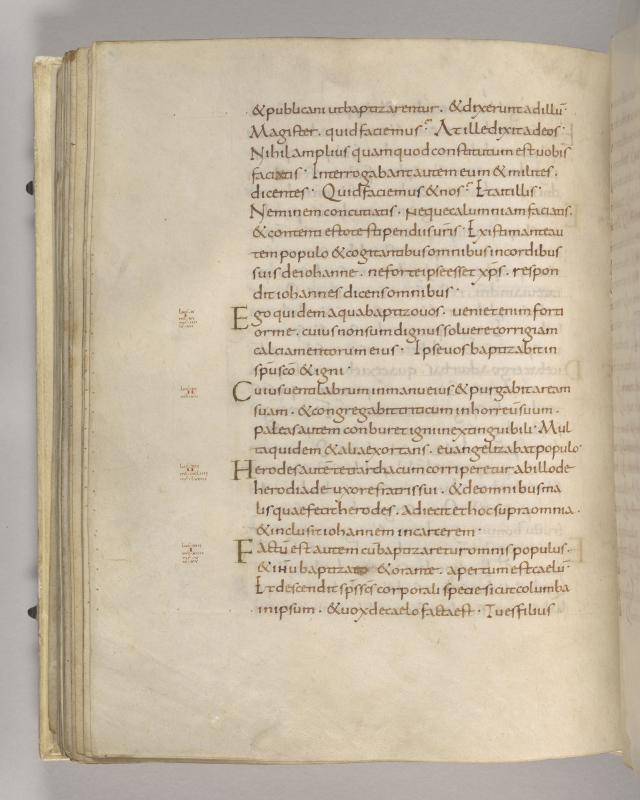 & publicani ut baptizarentur. & dixerunt ad illū
Magister. quid faciemus? At ille dixit ad eos
Nihil amplius quam quod constitutum est vobis
faciatis. Interrogabant autem eum & milites.
dicentes. Quid faciemus & nos? Et ait illis.
Neminem concutiatis. Neque calumniam faciatis.
& contenti estote stipendiis uris. Existimante au
tem populo & cogitantibus omnibus in cordibus
suis de iohanne. ne forte ipse esset xps. respon
dit iohannes dicens omnibus.
Ego quidem aqua baptizo uos. ueniet enim forti
or me. cuius non sum dignus soluere corrigiam
calciamentorum eius. Ipse uos baptizabit in
spu sco & igni.
Cuius uentilabrum in manu eius & purgabit aream
suam. & congregabit triticum in horreū suum.
paleas autem conburet igni inextinguibili. Mul
ta quidem & alia exortans. euangelizabat populo.
Herodes autē tetrarcha cum corriperetur ab illo de
herodiade uxore fratris sui. & de omnibus ma
lis quae fecit herodes. adiecit et hoc supra omnia.
& inclusit iohannem in carcerem.
Factū est autem cū baptizaretur omnis populus.
& ihu baptizato & orante. apertum est caelū
Et descendit sps scs corporali specie sicut columba
in ipsum. & uox de caelo facta est. Tu es filius